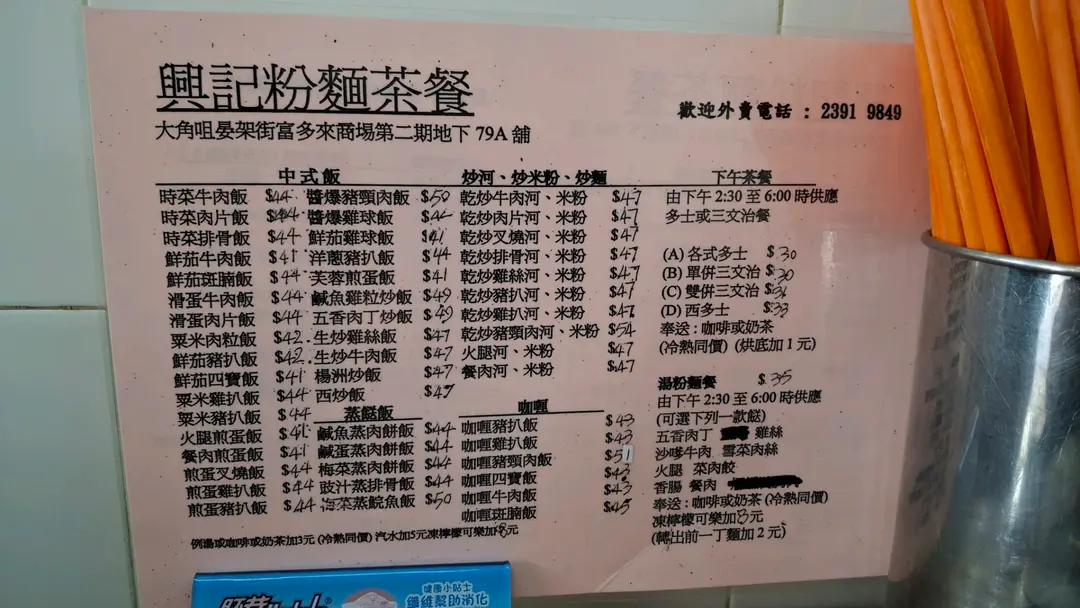 興記粉麵茶餐
歡迎外賣電話 : 2391 9849
大角咀晏架街富多來商場第二期地下 79A 舖
中式飯
時菜牛肉飯 $44
時菜肉片飯 $44
時菜排骨飯 $44
鮮茄牛肉飯 $41
鮮茄斑腩飯 $44
滑蛋牛肉飯 $44
滑蛋肉片飯 $44
粟米肉粒飯 $42
鮮茄豬扒飯 $42
鮮茄四寶飯 $41
粟米雞扒飯 $44
粟米豬扒飯 $44
火腿煎蛋飯 $41
餐肉煎蛋飯 $41
煎蛋叉燒飯 $44
煎蛋雞扒飯 $44
煎蛋豬扒飯 $44
醬爆豬頸肉飯 $50
醬爆雞球飯
鮮茄雞球飯 $41
洋蔥豬扒飯 $44
芙蓉煎蛋飯 $41
鹹魚雞粒炒飯 $49
五香肉丁炒飯 $49
生炒雞絲飯 $47
生炒牛肉飯 $47
楊洲炒飯 $47
西炒飯 $47
蒸餸飯
鹹魚蒸肉餅飯 $44
鹹蛋蒸肉餅飯 $44
梅菜蒸肉餅飯 $44
豉汁蒸排骨飯 $44
蒸鯇魚飯 $50
炒河、炒米粉、炒麵
乾炒牛肉河、米粉 $47
乾炒肉片河、米粉 $47
乾炒叉燒河、米粉 $47
乾炒排骨河、米粉 $47
乾炒雞絲河、米粉 $47
乾炒豬扒河、米粉 $47
乾炒雞扒河、米粉 $47
乾炒豬頸肉河、米粉 $54
火腿河、米粉 $47
餐肉河、米粉 $47
咖喱
咖喱豬扒飯 $43
咖喱雞扒飯 $43
咖喱豬頸肉飯 $51
咖喱四寶飯 $43
咖喱牛肉飯 $43
咖喱斑腩飯 $45
下午茶餐
由下午 2:30 至 6:00 時供應
多士或三文治餐
(A) 各式多士 $30
(B) 單併三文治 $30
(C) 雙併三文治 $31
(D) 西多士 $33
奉送 : 咖啡或奶茶
(冷熱同價) (烘底加 1 元)
湯粉麵餐 $35
由下午 2:30 至 6:00 時供應
(可選下列一款餸)
五香肉丁 雞絲
沙嗲牛肉 雪菜肉絲
火腿 菜肉餃
香腸 餐肉
奉送 : 咖啡或奶茶 (冷熱同價)
凍檸檬可樂加8元
(轉出前一丁麵加 2 元)
例湯或咖啡或奶茶加3元 (冷熱同價) 汽水加5元凍檸檬可樂加8元
健康小貼士
纖維幫助消化